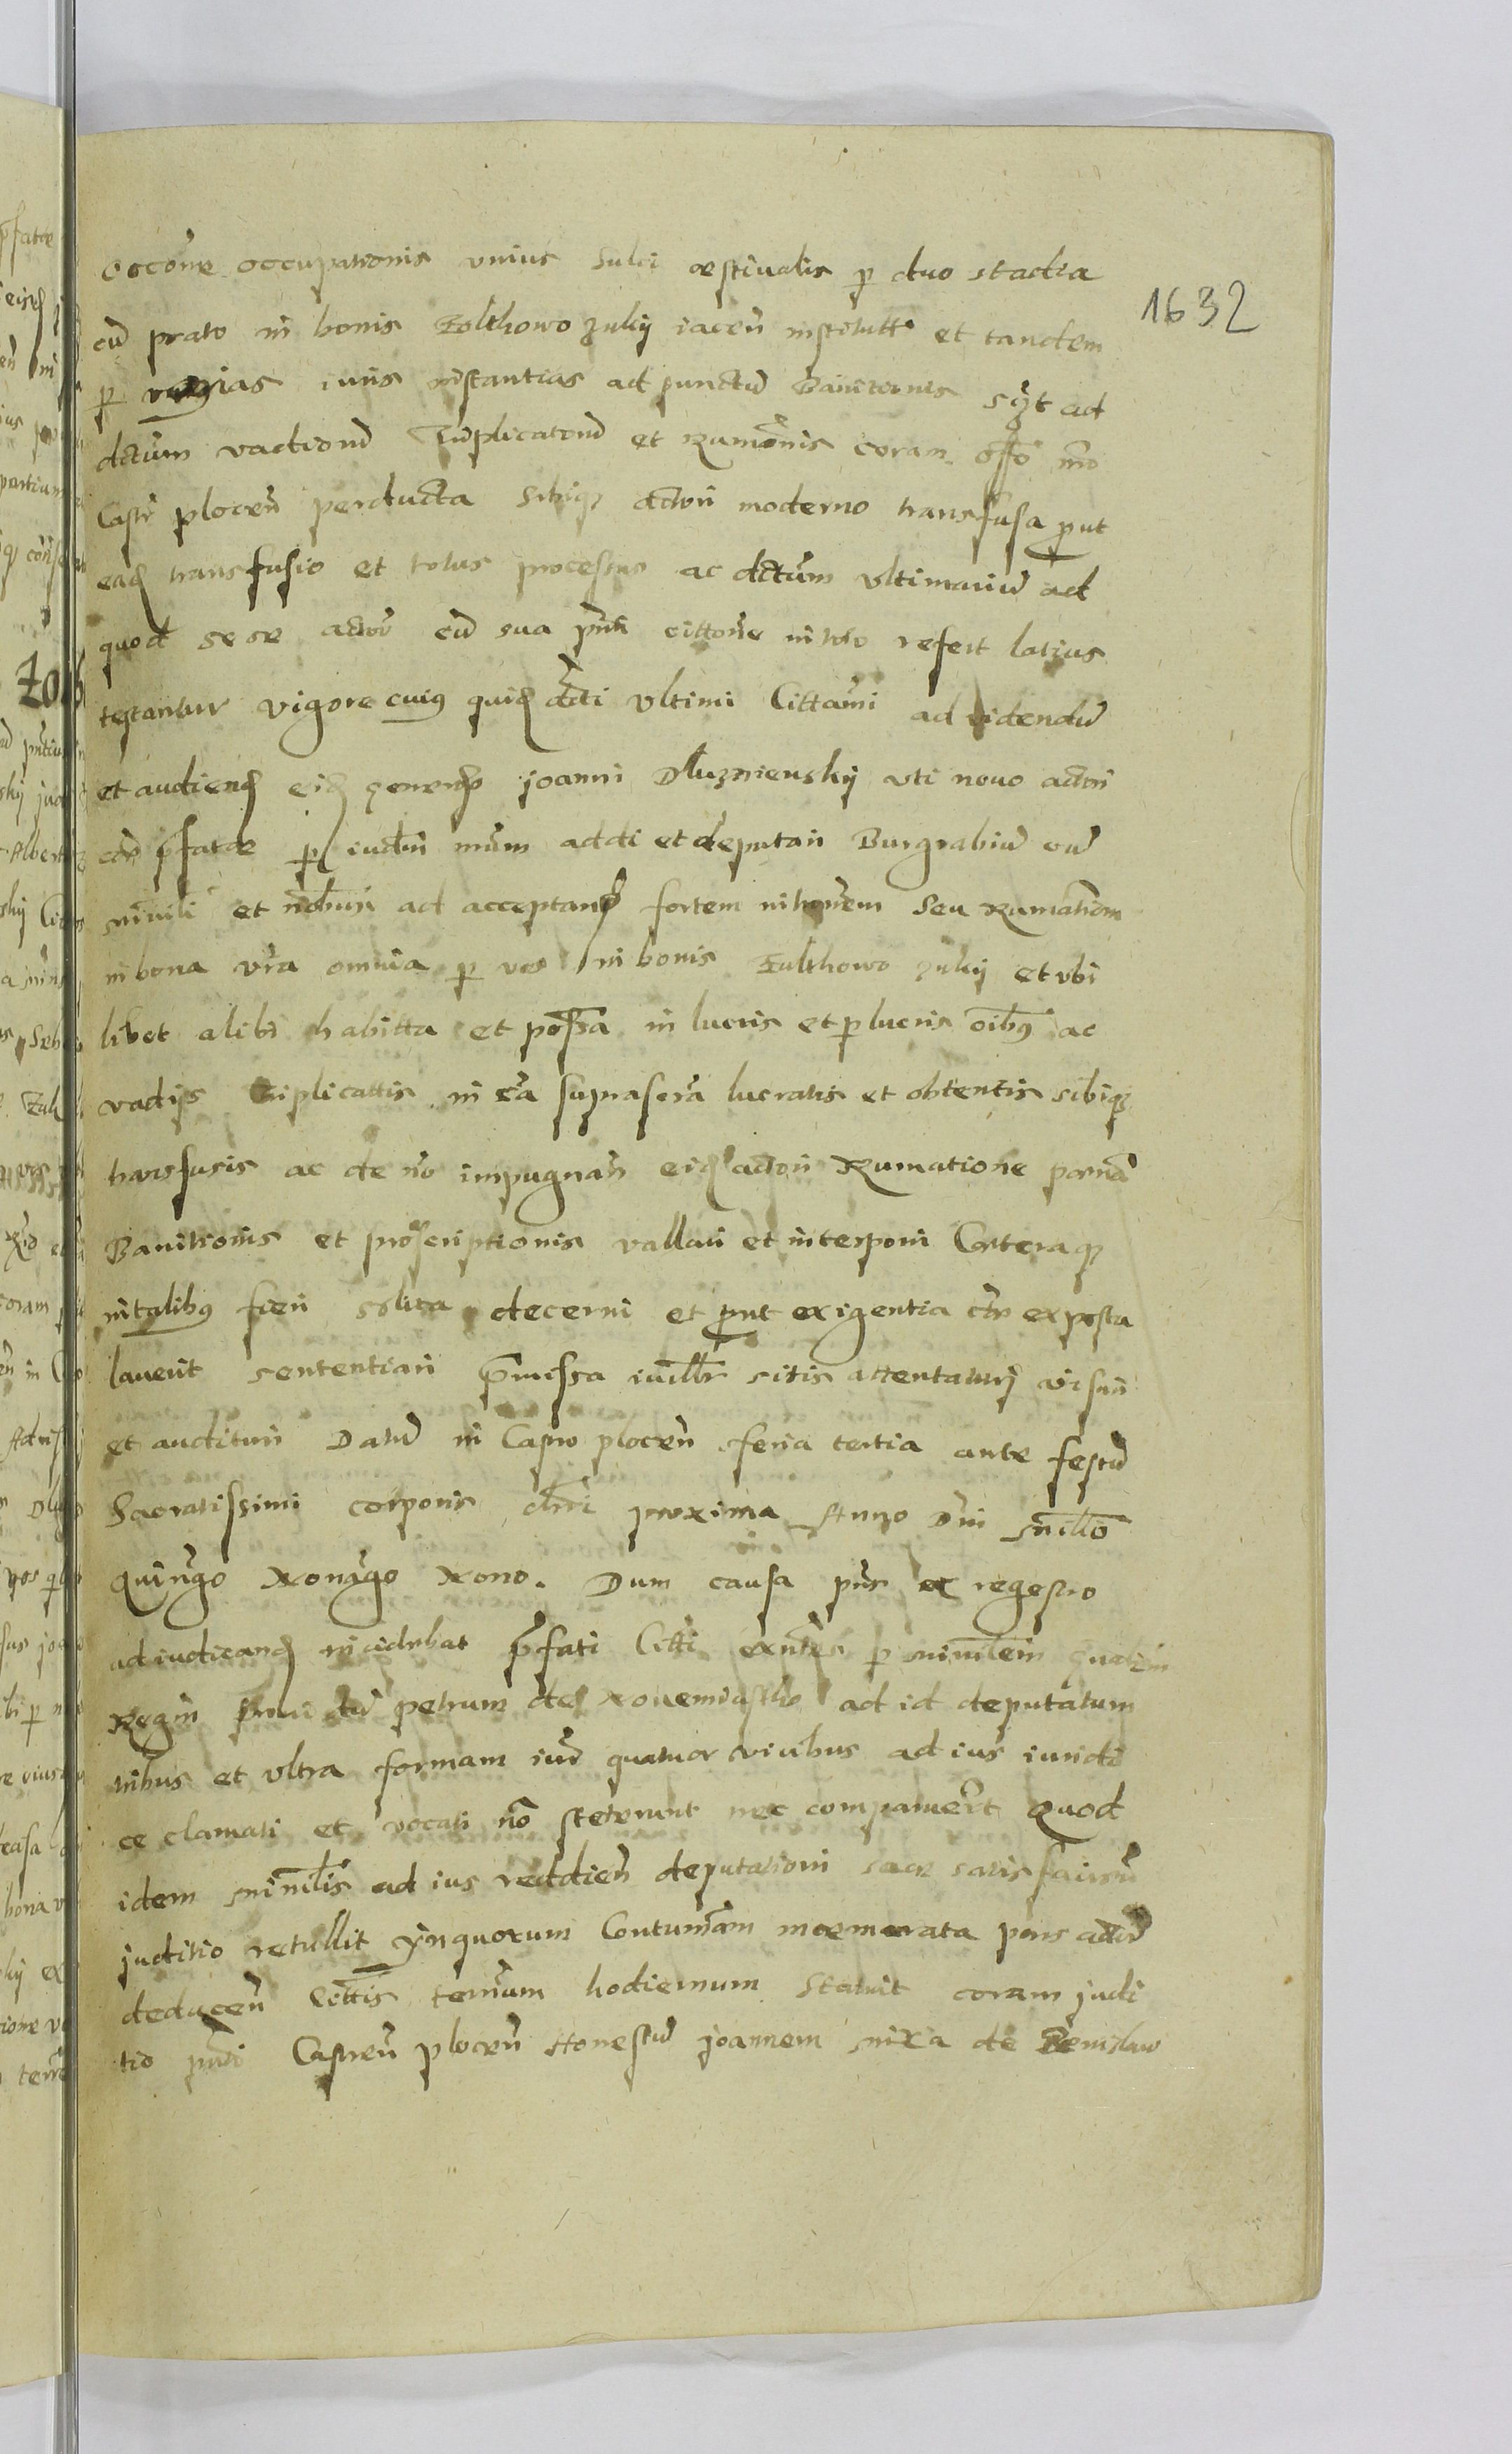 occone occupationis unius sulci aestivalis p duo stadia
1632
cu prato in bonis Folthowo zuky iacen institutt et tandem
p varias iuris instantias ad punctu Banitionis
dctum vadioru Triplicatoru et Rumonis coram offo nro
Castr plocen perducta sibiq actori moderno transfusa put
ead transfusio et totus processus ac dctum ultimariu ad
quod se se actor cu sua pnti cittone in toto refert latius
testantur vigore cuius quid ultimi Cittami ad videndu
et audiend eid generoso joanni Dluznieusky uti novo actori
pfatae p iudm nrum addi et deputari Burgrabiu cu
minrli et nobus ad acceptand fortem intromem seu Rumationem
in bona vra omnia p vos in bonis Fulthowo zuky et ubi
libet alibi habitta et possa in lucris et p lucris oibus ac
vadys Triplicattis in ca suprascra lucratis et obtentis sibiq
transfusis ac de no impugnan eid actori Rumatione poena
Banitionis et proscriptionis vallari et interponi Caeteraq
in talibus fieri solita decerni et put exigentia exposta
laverit sententiari pmissa sitis attentaturi visuri
et audituri Datu in Castro plocen feria tertia ante festu
Sacratissimi corporis chri proxima Anno Dni milio
Quingo Nonago Nono. Dum causa pns ex regestro
ad iudicand incidebat pfati Citti p minrlem
Regni petrum de ad id deputatum
tribus et ultra formam iur quatuor vicibus ad ius iuridi
ce clamati et vocati no steterunt nec comparuert Quod
idem minrlis ad ius redden deputationi suae satisfaciens
juditio retullit yn quorum Contumam memorata pars actor
deducen Cittis termum hodiernum Statuit coram judi
tio pnti Castren plocen Honestu joannem mixa de